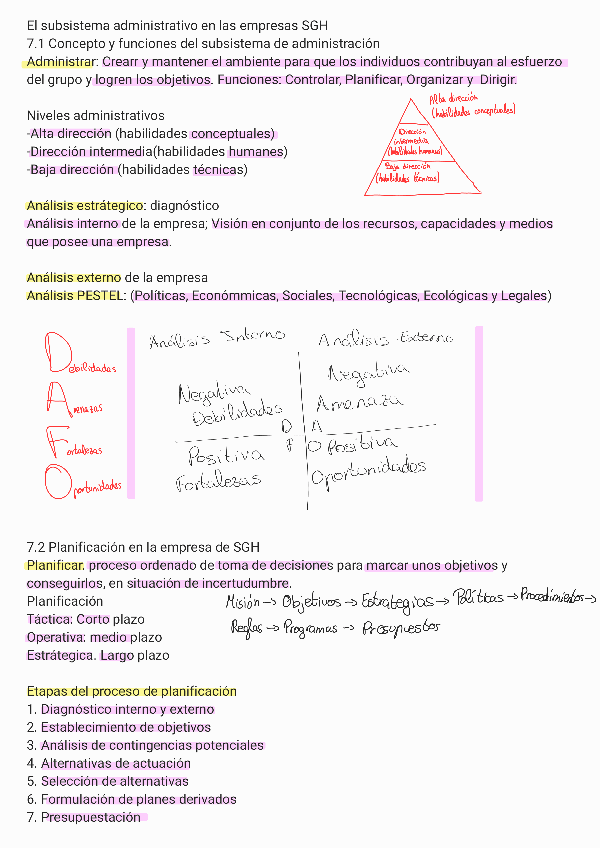 El subsistema administrativo en las empresas SGH
7.1 Concepto y funciones del subsistema de administración
Administrar: Crearr y mantener el ambiente para que los individuos contribuyan al esfuerzo
del grupo y logren los objetivos. Funciones: Controlar, Planificar, Organizar y Dirigir.
Niveles administrativos
-Alta dirección (habilidades conceptuales)
-Dirección intermedia(habilidades humanes)
-Baja dirección (habilidades técnicas)
Alta dirección
(habilidades conceptuales)
Dirección
intermedia
(habilidades humanas)
Baja dirección
(habilidades técnicas)
Análisis estrátegico: diagnóstico
Análisis interno de la empresa; Visión en conjunto de los recursos, capacidades y medios
que posee una empresa.
Análisis externo de la empresa
Análisis PESTEL: (Políticas, Económmicas, Sociales, Tecnológicas, Ecológicas y Legales)
Debilidades
Amenazas
Fortalezas
Oportunidades
Análisis Interno
Análisis Externo
Negativa
Debilidades
D
Negativa
Amenaza
A
Positiva
Fortalezas
F
O Positiva
Oportunidades
7.2 Planificación en la empresa de SGH
Planificar. proceso ordenado de toma de decisiones para marcar unos objetivos y
conseguirlos, en situación de incertudumbre.
Planificación
Táctica: Corto plazo
Operativa: medio plazo
Estrátegica. Largo plazo
Misión → Objetivos → Estrategias → Políticas → Procedimientos →
Reglas → Programas → Presupuestos
Etapas del proceso de planificación
1. Diagnóstico interno y externo
2. Establecimiento de objetivos
3. Análisis de contingencias potenciales
4. Alternativas de actuación
5. Selección de alternativas
6. Formulación de planes derivados
7. Presupuestación